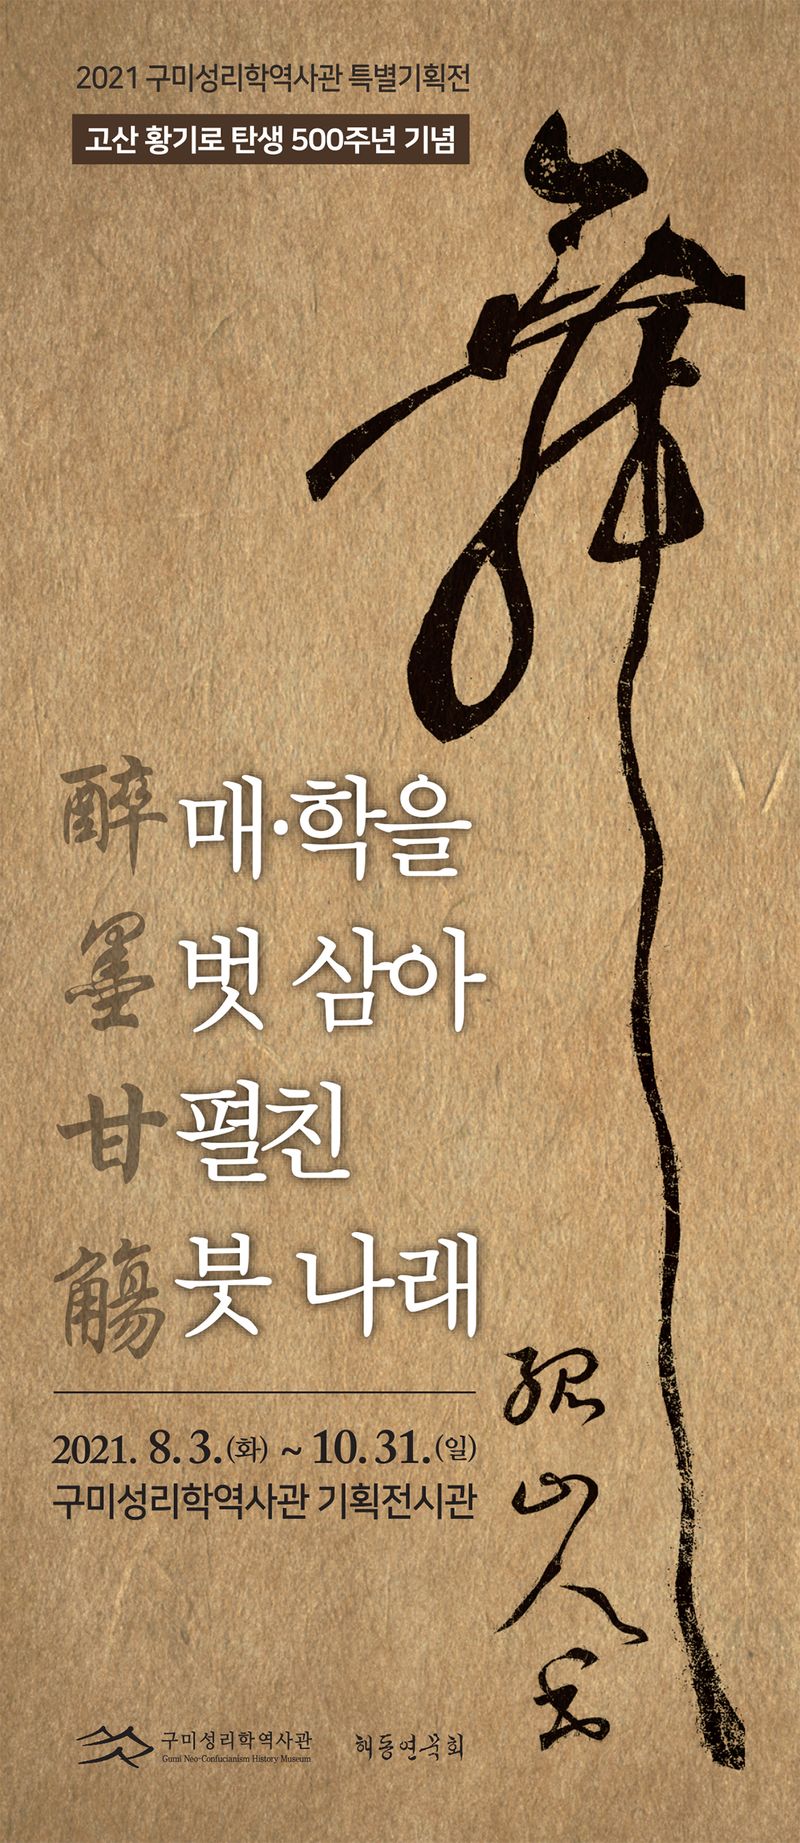 2021 구미성리학역사관 특별기획전
고산 황기로 탄생 500주년 기념
醉墨甘觴
매·학을
벗 삼아
펼친
붓 나래
孤山人書
2021. 8. 3.(화) ~ 10. 31.(일)
구미성리학역사관 기획전시관
구미성리학역사관
Gumi Neo-Confucianism History Museum
해동연묵회